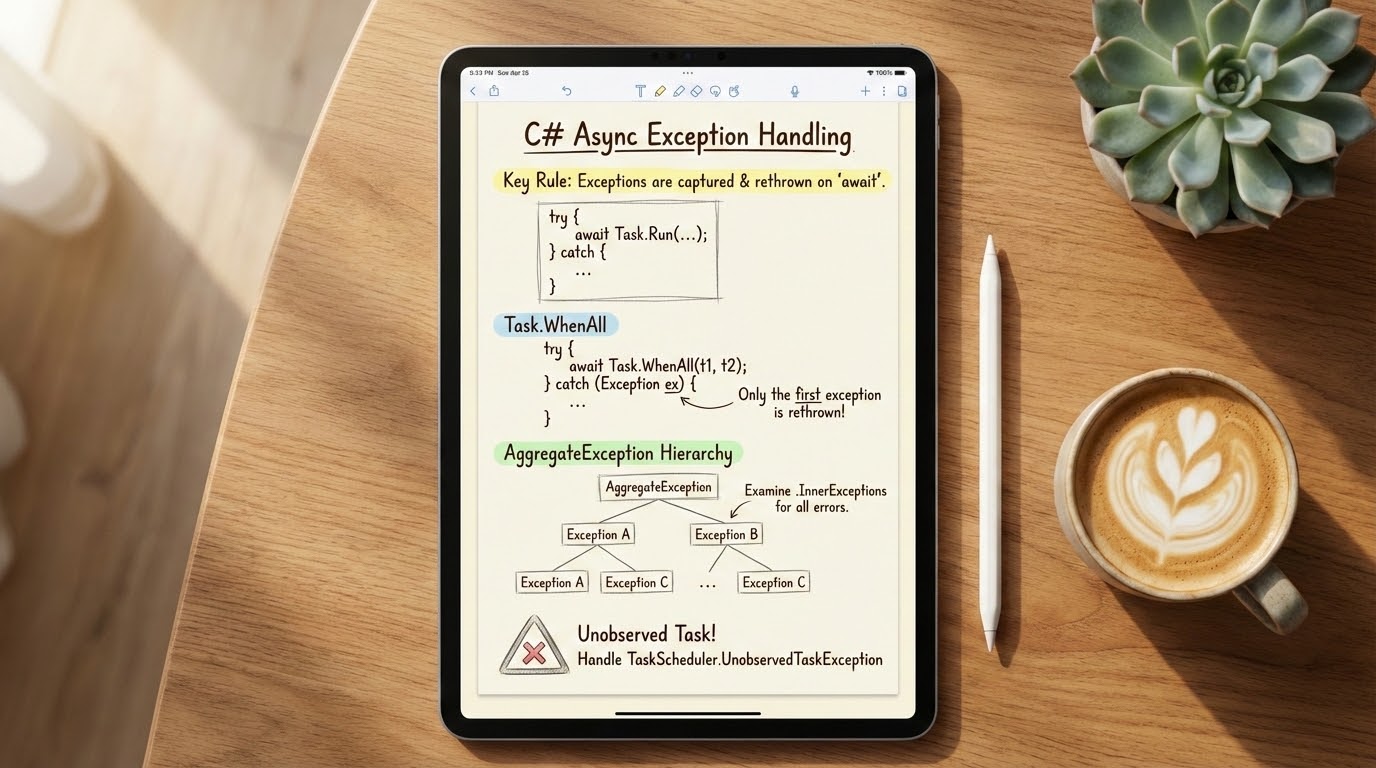 5:33 PM Sun Apr 25
100%
C# Async Exception Handling
Key Rule: Exceptions are captured & rethrown on 'await'.
try {
await Task.Run(...);
} catch {
...
}
Task.WhenAll
try {
await Task.WhenAll(t1, t2);
} catch (Exception ex) {
...
}
Only the first exception
is rethrown!
AggregateException Hierarchy
AggregateException
Examine .InnerExceptions
for all errors.
Exception A
Exception B
Exception A
Exception C
...
Exception C
Unobserved Task!
Handle TaskScheduler.UnobservedTaskException